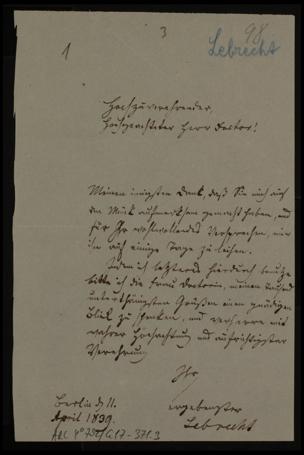 3
98
1
Lebrecht
Hochzuverehrender,
Hochgeachteter Herr Doctor!
Meinen innigsten Dank, daß Sie mich auf
aufmerksam gemacht haben, und
für Ihr wohlwollendes Versprechen, mir
ihn auf einige Tage zu leihen.
Indem ich letzteres hierdurch
bitte ich die Frau Doctorin, meinen
unterthänigsten Grüßen einen gnädigen
Blick zu schenken, und verharre mit
wahrer Hochachtung und aufrichtigster
Verehrung
Ihr
ergebenster
Lebrecht
Berlin d. 11.
April 1839.